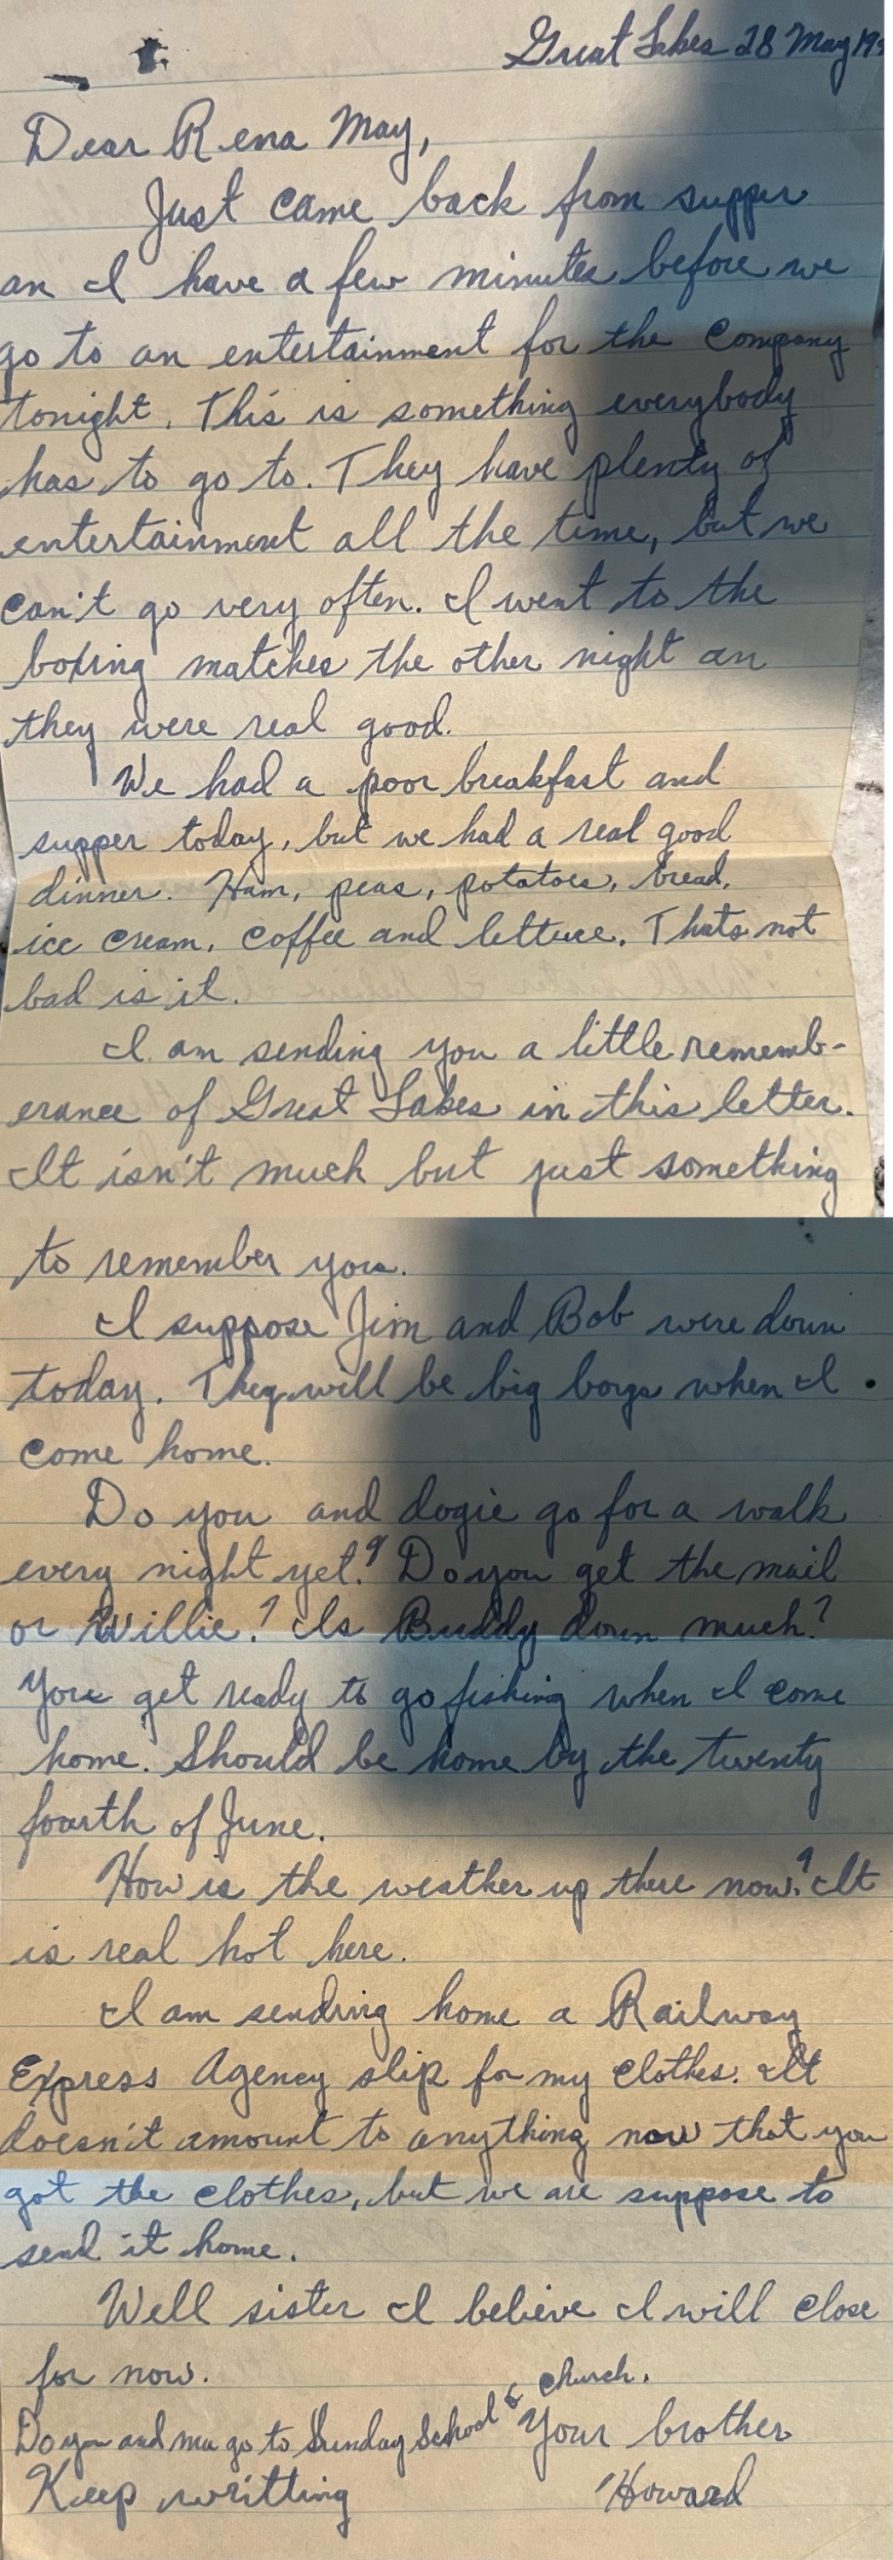 Great Lakes 28 May 19
Dear Rena May,
Just came back from supper
an I have a few minutes before we
go to an entertainment for the company
tonight. This is something everybody
has to go to. They have plenty of
entertainment all the time, but we
can't go very often. I went to the
boxing matches the other night an
they were real good.
We had a poor breakfast and
supper today, but we had a real good
dinner. Ham, peas, potatoes, bread,
ice cream, coffee and lettuce. Thats not
bad is it.
I am sending you a little rememb-
erance of Great Lakes in this letter.
It isn't much but just something
to remember you.
I suppose Jim and Bob were down
today. They will be big boys when I
come home.
Do you and dogie go for a walk
every night yet? Do you get the mail
or Willie? Is Buddy down much?
You get ready to go fishing when I come
home. Should be home by the twenty
fourth of June.
How is the weather up there now? It
is real hot here.
I am sending home a Railway
Express Agency slip for my clothes. It
doesn't amount to anything now that you
got the clothes, but we are suppose to
send it home.
Well sister I believe I will close
for now.
Do you and ma go to Sunday School & Church.
Your brother
Keep writting
Howard